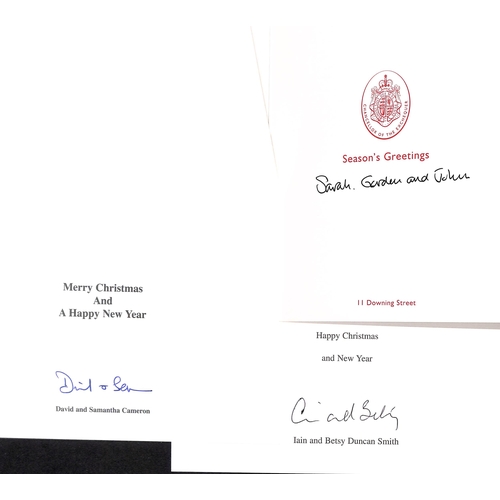 CHANCELLOR OF THE EXCHEQUER
Season's Greetings
Sarah, Gordon and John
11 Downing Street
Merry Christmas
And
A Happy New Year
David + Sam
David and Samantha Cameron
Happy Christmas
and New Year
Iain and Betsy
Iain and Betsy Duncan Smith